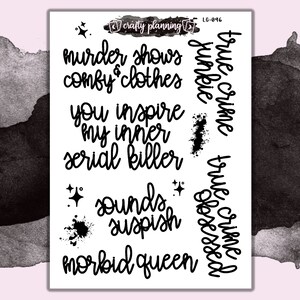 crafty planning
LC-046
murder shows
& comfy clothes
you inspire
my inner
serial killer
sounds
suspish
morbid queen
true crime
junkie
true crime
obsessed